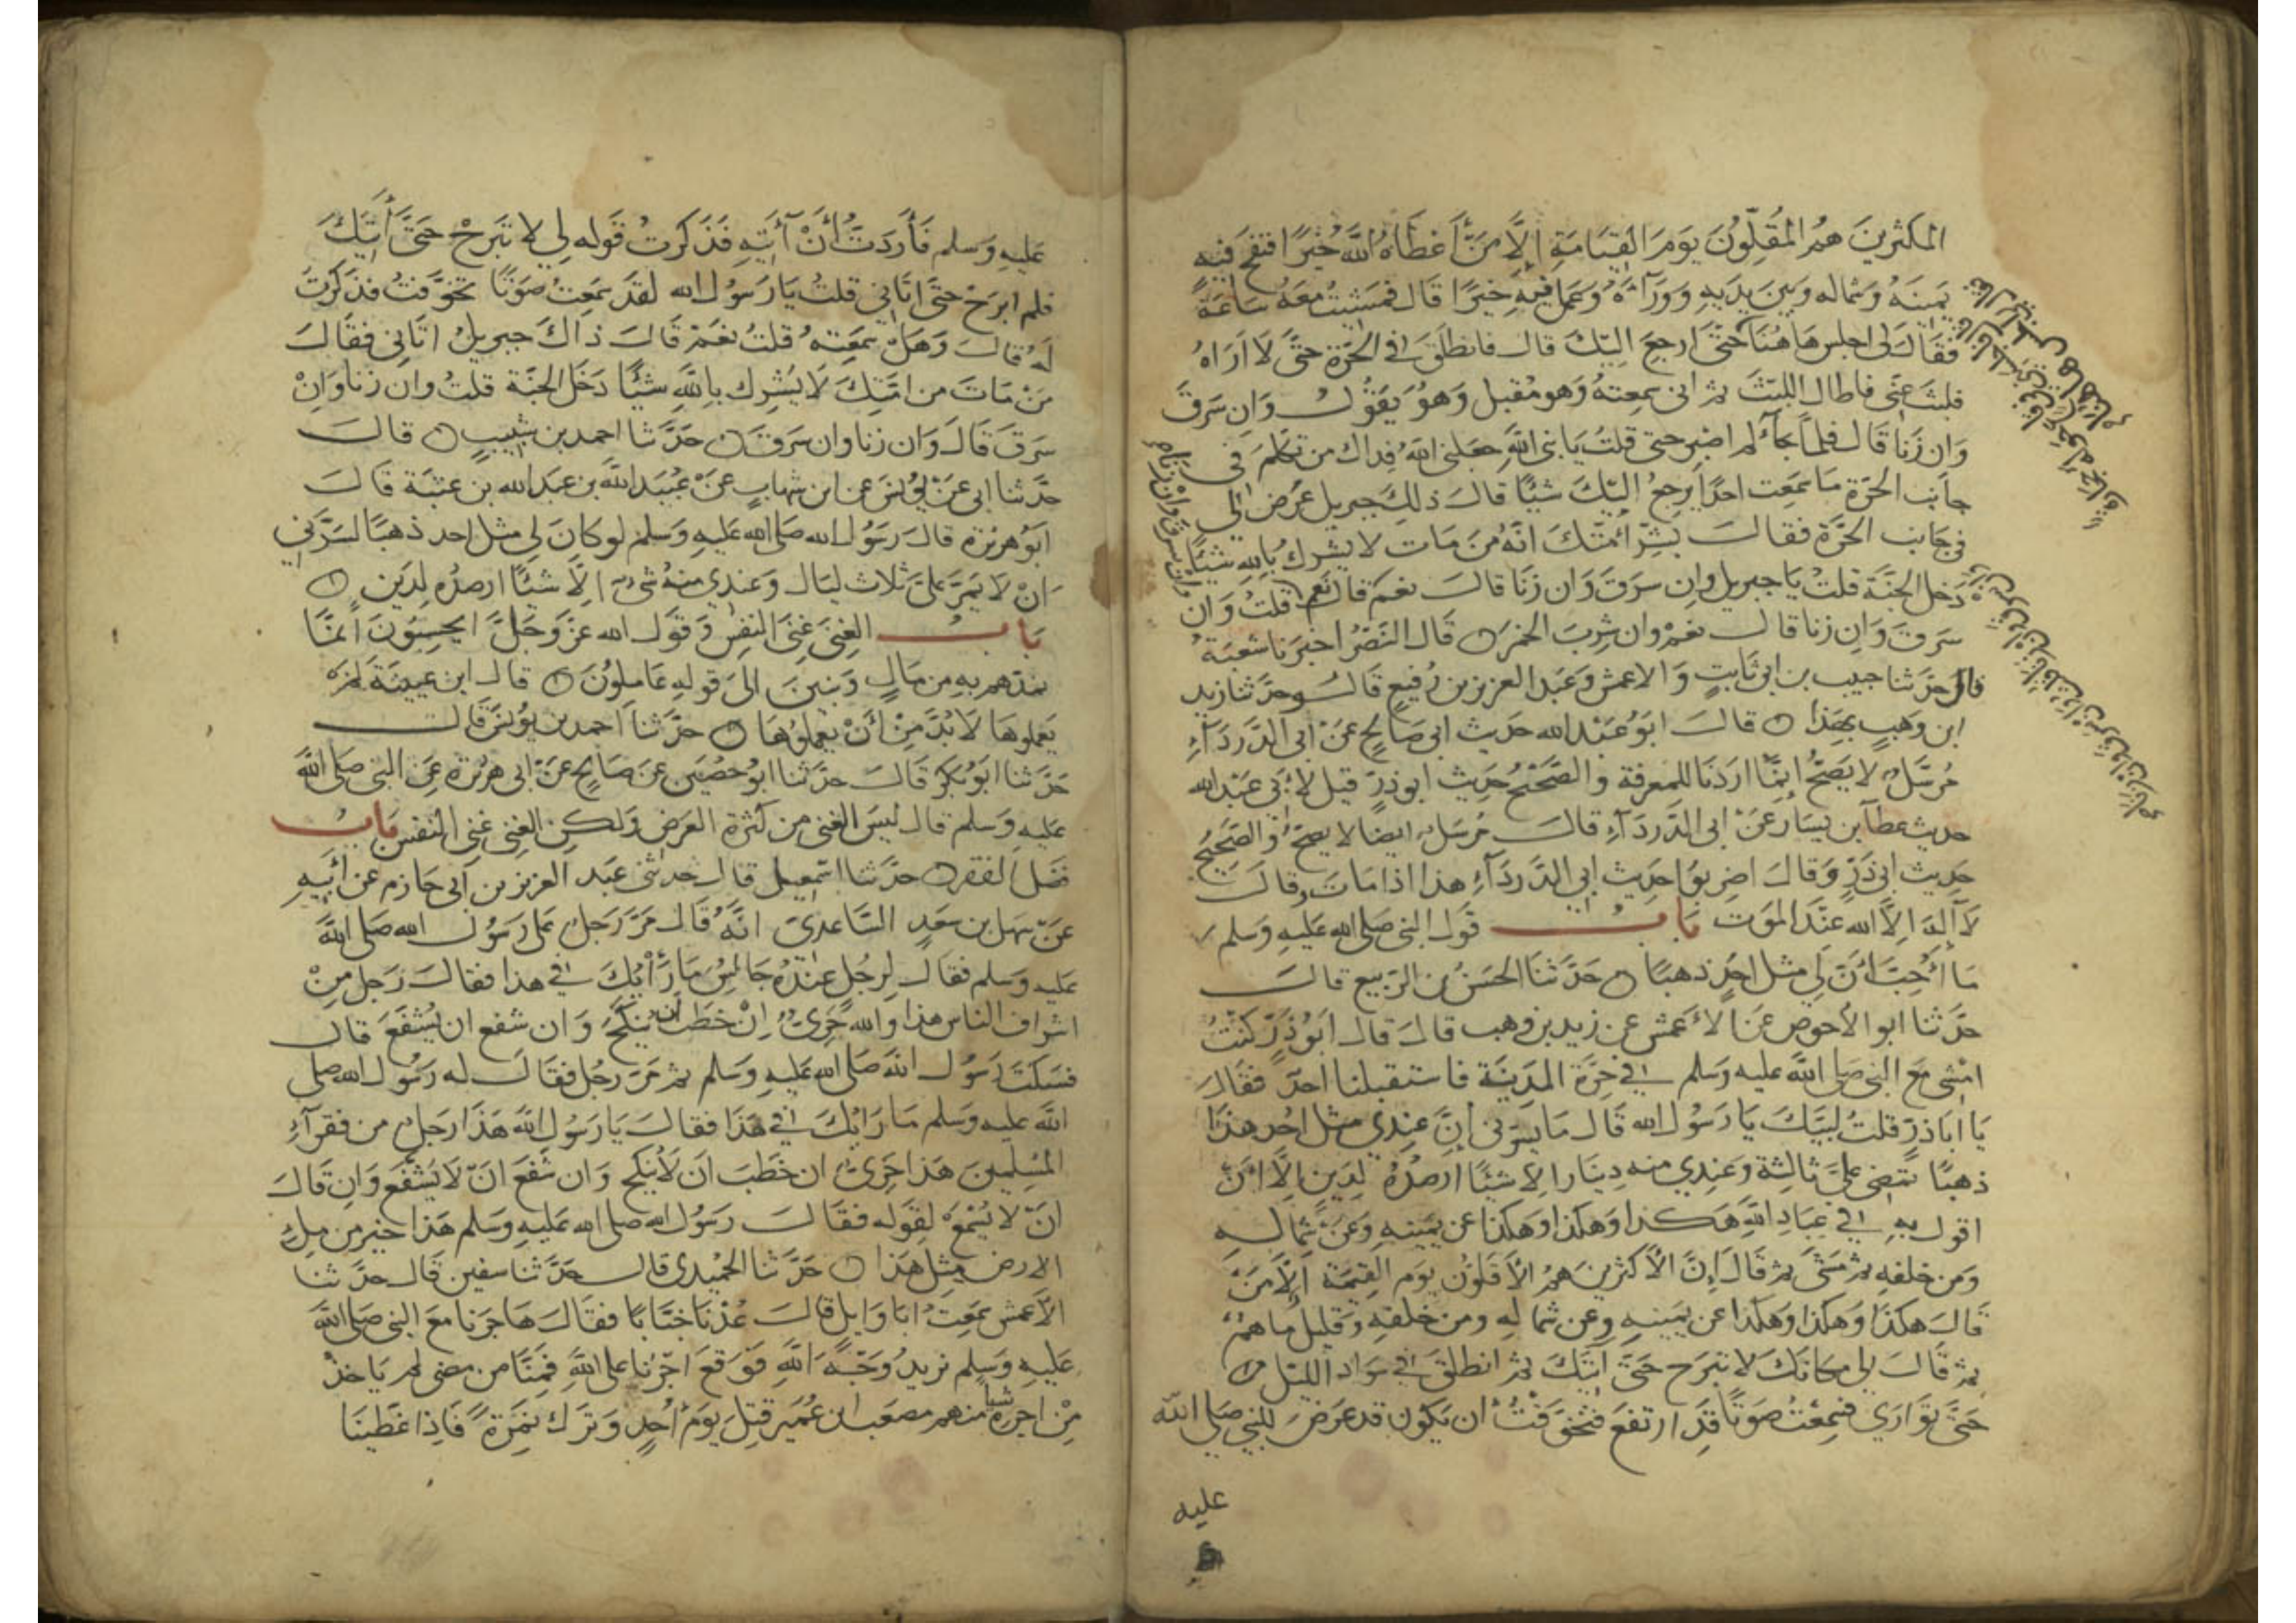 المكثرين هُم المُقِلّون يَومَ القِيَامَةِ اِلَّا مَن أعْطَاهُ اللَّه خَيرًا فنفح فيه
يَمِينَهُ وشماله وبَينَ يدَيهِ وَوَرَآءَهُ وعَمل فيهِ خيرًا قال فمشَيتُ مَعَهُ سَاعَةً
فقالَ لى اجلِس هَاهُنَا حَتّى ارجعَ اليْكَ قال فانطلَقَ فى الحَرّة حتَّى لا اَرَاهُ
فلبثَ عنّى فاطال اللبثَ ثم انى سمعتهُ وَهو مُقبل وهُوَ يَقوُل وَان سَرقَ
وَان زَنا قال فلمّا جآء لم اصبر حتى قلتُ يَا نبى اللهِ جعَلنى اللهُ فِداك من تكلم فى
جانب الحَرّة ما سمعت احدًا يرجعُ اليْكَ شيئًا قالَ ذلكَ جبريل عَرضَ لى
فى جَانب الحَرّة فقالَ بشّر أمّتكَ انهُ من مَات لا يشرك بالله شيئًا
دَخلَ الجنّة قلتُ يَا جبريل وان سَرقَ وَان زنا قالَ نعم قال نعم قلتُ وَان
سَرقَ وَان زنا قال نعم وان شربَ الخمر قالَ النَضرُ اخبرَنا شعبَةُ
قال حدّثنا حبيب بن ابى ثابتٍ وَالاعمش وعَبد العزيز بن رُفيع قال وحدّثنا زيد
ابن وهبٍ بهَذا قالَ ابو عَبْد الله حَديث ابى صَالح عَن ابى الدّردَآءِ
مُرسَل لا يَصحّ اِنمّا ارَدنَا للمعرفة والصّحيح حديث ابو ذرٍّ قيل لأبى عَبد الله
حديث عطآ بن يسَار عَن ابى الدّردَآءِ قالَ مُرسَل ايضًا لا يصحّ والصّحيح
حديث ابى ذَرٍّ وَقالَ اضربوا حديث ابى الدّردَآءِ هذا اذا مَاتَ وقالَ
لا اله الاّ الله عندَ الموت بَابُ قول النبى صَلى الله عَليهِ وسَلم
مَا أُحبّ أنّ لى مثل اُحدٍ ذهبًا حَدثنَا الحسَنُ بن الرّبيع قالَ
حدّثنا ابو الأحوص عَن الأعمش عن زيد بن وهب قالَ قال ابَو ذرٍّ كنتُ
امشى مَعَ النبى صَلى اللهُ عليه وسَلم فى حَرّة المدينَة فاستقبلنا اُحدٌ فقالَ
يَا ابَا ذرٍّ قلتُ لبّيكَ يَا رَسُول الله قَال مَا يسرّنى اِنّ عندِى مثل اُحُد هذا
ذهبًا تمضى علىَّ ثالثة وعندِى منه دينَار الا شيئًا ارصدُهُ لدَين اِلّا أنْ
اقول به فى عبَادِ اللهِ هَكذا وَهكذا وهكذا عَن يمينهِ وَعَن شماله
وَمن خلفهِ ثم مَشى ثم قَالَ اِنّ الأكثرينَ هم الأقلونَ يَوم القيمَة اِلّا مَنْ
قالَ هكذا وَهكذا وهكذا عن يمينهِ وعن شماله ومن خلفهِ وقليل ما هُمْ
ثم قالَ لى مكانَك لا تبَرح حَتّى آتيَكَ ثم انطلقَ فى سَواد الليل
حَتّى توَارَى فسَمعتُ صَوتًا قد ارتفعَ فتخوَّفتُ أن يَكون قد عَرض للنبى صَلى الله
عليه
عليهِ وَسلم فَأرَدتُ أنْ آتيهِ فَذكرتُ قوله لى لا تَبرَحْ حَتّى آتيَكَ
فلم ابرَحْ حتى اتانى قلتُ يَا رَسُول الله لقد سَمعتُ صَوتًا تخوّفتُ فذكرتُ
لَهُ قالَ وَهَلْ سمعتهُ قلتُ نعَم قالَ ذاكَ جبريلُ اتانى فقالَ
مَن مَات من امّتكَ لا يُشرك باللهِ شيئًا دَخلَ الجنّة قلتُ وان زنا وَانْ
سرَقَ قالَ وَان زنا وان سرَقَ حَدّثنا احمد بن شبيبٍ قالَ
حدّثنا ابى عَن يُونسَ عَن ابن شهابٍ عَنْ عُبَيد الله بن عَبد الله بن عتبَة قالَ
ابوُ هريَرة قالَ رَسُول الله صَلى الله عَليهِ وسَلم لو كانَ لى مثل احد ذهبًا لسَرّنى
انْ لا يَمرّ علىَّ ثلاث ليَال وَعندى منهُ شىء اِلّا شيئًا ارصدُه لِدَين
بَابُ الغِنى غِنَى النفس وَقول الله عزّ وَجَلّ ايحسِبُونَ أنمّا
نمدّهم بِه من مَالٍ وَبنينَ الى قوله عَاملونَ قال ابن عيينَة لم
يَعملوهَا لا بُدّ مِنْ أنْ يعملوُهَا حدّثنا احمد بن يوُنسَ قالَ
حَدّثنا ابوُ بكر قالَ حدّثنا ابوُ حصَين عَن صَالح عَن ابى هريرَة عَن النبى صَلى اللهُ
عَليهِ وَسلم قال ليسَ الغنى من كثرة العَرض وَلكِن الغنى غِنَى النفس بَابُ
فضل الفقر حدّثنا اسْمعيل قالَ حدثنى عَبد العزيز بن ابى حَازم عن ابيه
عَنْ سَهل بن سَعدٍ السّاعدى انّهُ قَالَ مَرّ رَجل على رَسُول الله صَلى اللهُ
عَليهِ وسلم فقال لرجلٍ عندَهُ جَالسٌ مَا رَأيُكَ فى هذا فقالَ رَجل مِنْ
اشراف الناس هذا وَالله حَرىٌّ اِنْ خطَبَ ان ينكحَ وَان شفع ان يُشفّعَ قال
فسَكتَ رَسُول اللهِ صَلى الله عَليهِ وسَلم ثم مَرّ رَجُل فقالَ له رَسُول الله صلى
اللهُ عليه وسَلم مَا رَأيُكَ فى هَذا فقالَ يَا رَسُول اللهِ هَذا رَجل من فقرآءِ
المسُلمينَ هَذا حَرىٌّ ان خَطَبَ ان لا ينكح وَان شفعَ انْ لا يُشفّع وَان قالَ
انْ لا يُسْمعَ لِقَوله فقالَ رَسُول الله صَلى الله عَليهِ وسَلم هَذا خير من مِلء
الارض مثل هَذا حَدّثنا الحُميدى قال حَدّثنا سفين قالَ حدّثنا
الأعمش سَمعتُ ابَا وَايل قالَ عُدنَا خبّابًا فقالَ هَاجَرنا معَ النبى صَلى اللهُ
عَليهِ وَسلم نريدُ وَجْهَ اللهِ فوَقعَ اجْرُنا على اللهِ فمِنّا من مضى لم يَاخذ
مِنْ اجرهِ شيا منهم مصعَب ابن عُمَير قتِلَ يَومَ أُحُدٍ وَتركَ نمِرَة فَاذا غَطّينَا